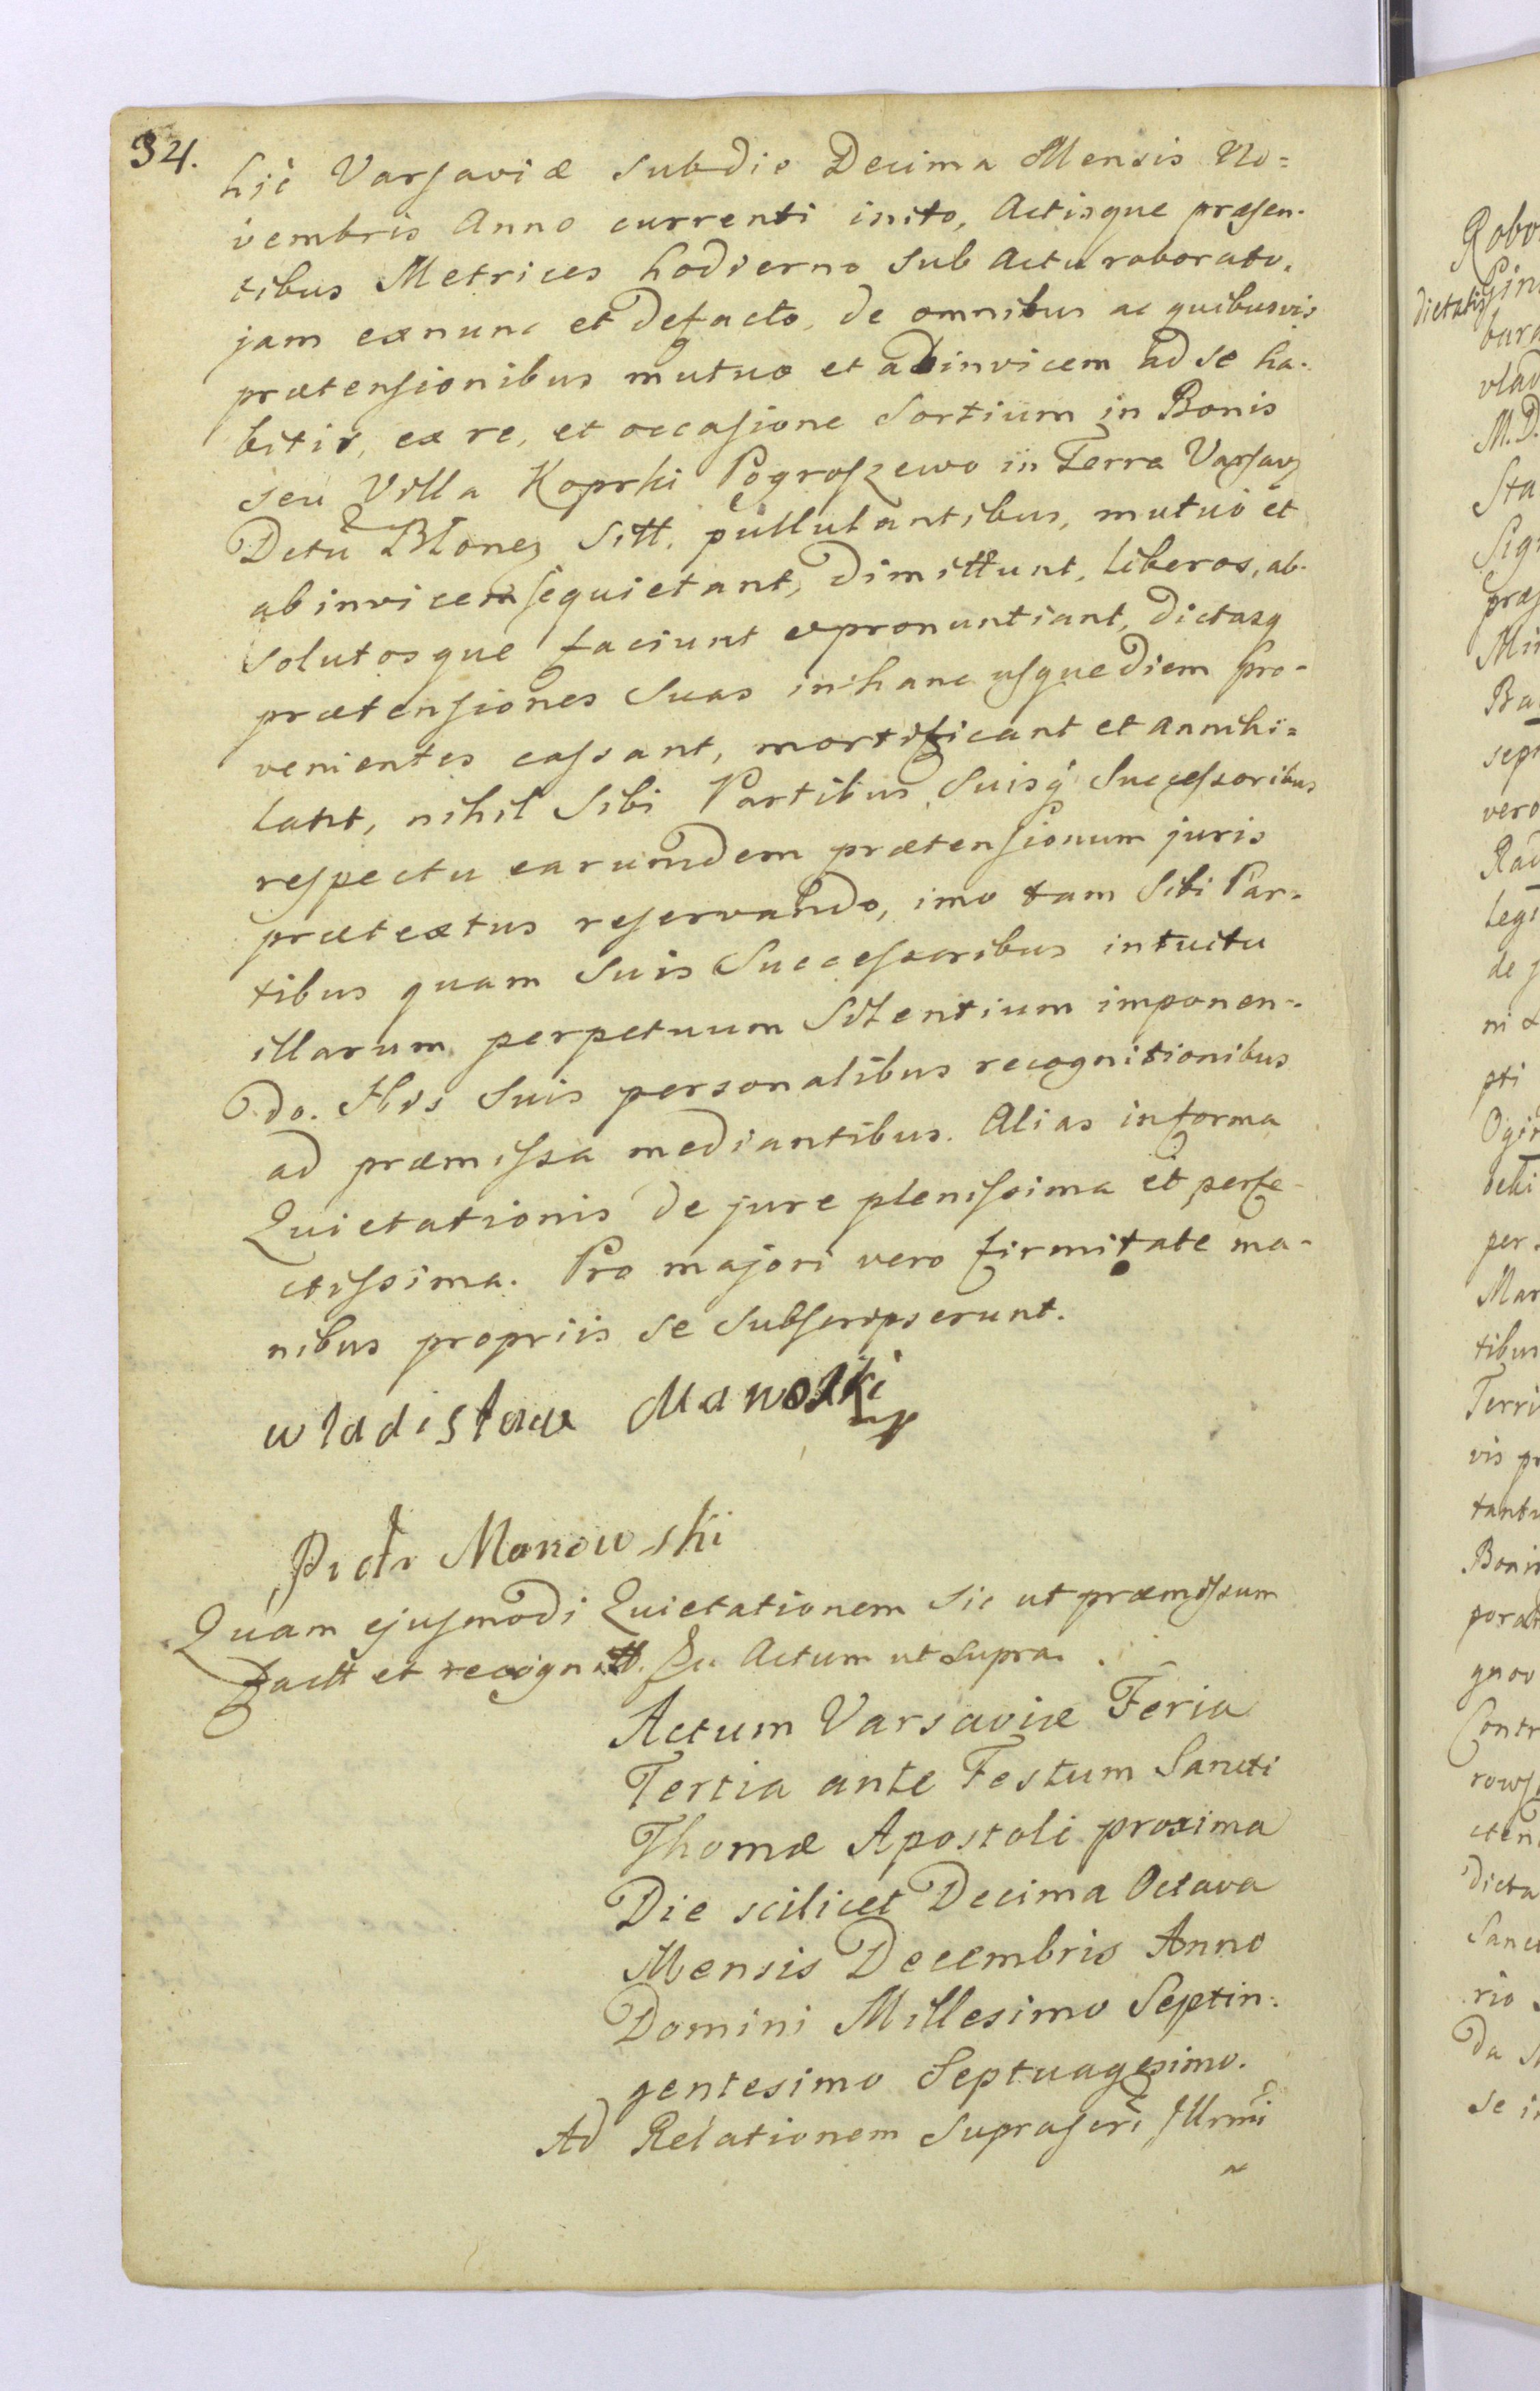 34.
hic Varsaviæ sub die Decima Mensis No=
vembris Anno currenti inito, Actisque præsen-
tibus Metrices hodierno sub Actu roborato,
jam ex nunc et de facto, de omnibus ac quibusvis
prætensionibus mutuo et ab invicem ad se ha-
bitis, ex re, et occasione Sortium in Bonis
seu Villa Koprki Pogroszewo in Terra Varsav
Dctu Blonen Sitt. pullulantibus, mutuo et
ab invicem se quietant, dimittunt, liberos, ab-
solutosque faciunt et pronuntiant, dictasq
prætensiones Suas in hanc usque diem Pro-
venientes cassant, mortificant et annihi=
lant, nihil Sibi Partibus Suisq Successoribus
respectu earumdem prætensionum juris
prætextus reservando, imo tam Sibi Par-
tibus quam Suis Successoribus intuitu
illarum perpetuum Silentium imponen-
do. His Suis personalibus recognitionibus
ad præmissa mediantibus. Alias in forma
Quietationis de jure plenissima et perfe-
ctissima. Pro majori vero firmitate ma-
nibus propriis se Subscripserunt.
wladislaw Manoski mp
Piotr Manowski
Quam ejusmodi Quietationem Sic ut præmissum
factt et recognitt. Actum ut Supra.
Actum Varsaviæ Feria
Tertia ante Festum Sancti
Thomæ Apostoli proxima
Die scilicet Decima Octava
Mensis Decembris Anno
Domini Millesimo Septin-
gentesimo Septuagesimo.
Ad Relationem Suprascri Illrmi
Robo
dictatis
bura
vlad
M. D.
Sta
Sig
præ
Mi
Ba
sept
vero
Rad
legi
de
ni
pti
Ogi
per
Mar
tibus
Terri
vis pr
tantu
Boni
porat
gnov
Contr
rows
cten
dicta
Sanc
rio
da
se i